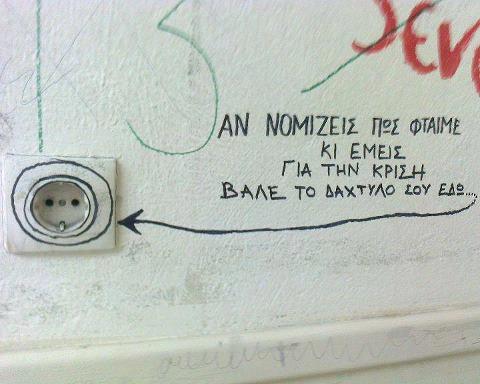 SEVE
ΑΝ ΝΟΜΙΖΕΙΣ ΠΩΣ ΦΤΑΙΜΕ
ΚΙ ΕΜΕΙΣ
ΓΙΑ ΤΗΝ ΚΡΙΣΗ
ΒΑΛΕ ΤΟ ΔΑΧΤΥΛΟ ΣΟΥ ΕΔΩ...